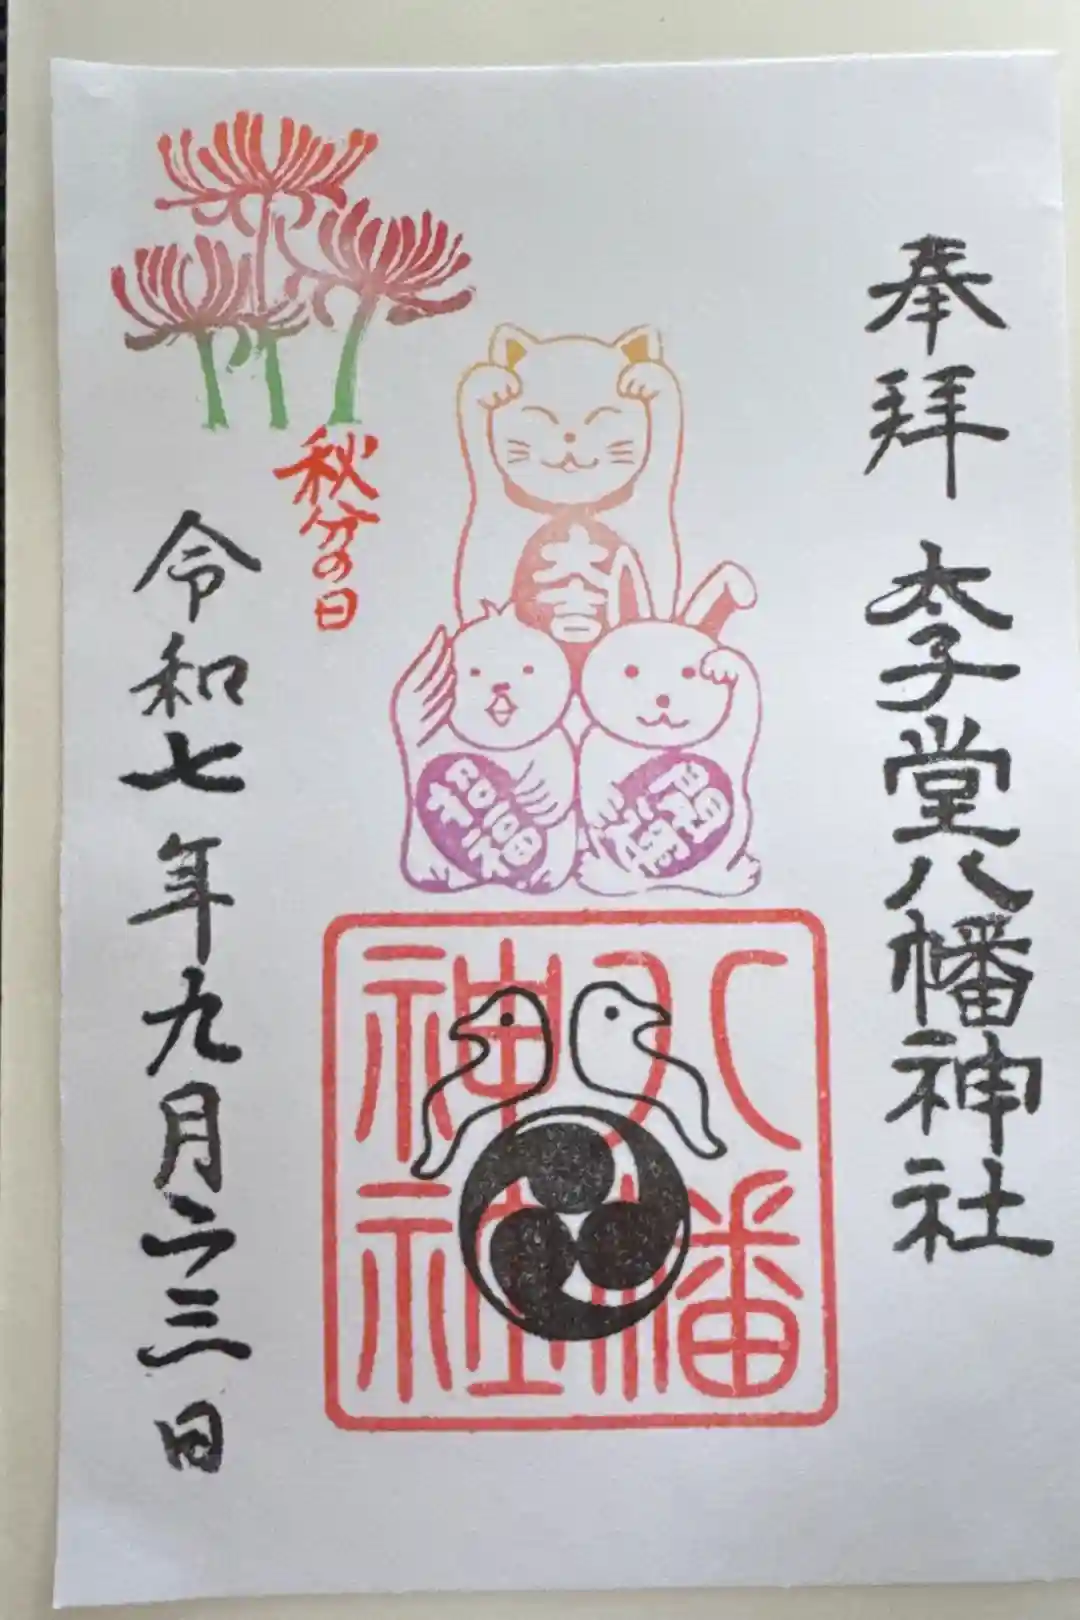 奉拝 太子堂八幡神社
大吉
開運
招福
八幡
神社
秋分の日
令和七年九月二三日